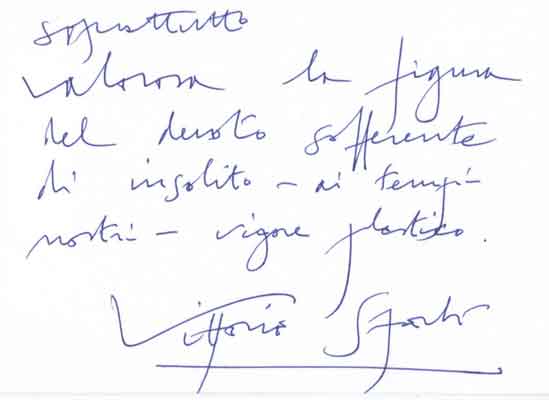 soprattutto
valorosa la figura
del devoto sofferente
di insolito - ai tempi
nostri - vigore plastico.
Vittorio Sgarbi